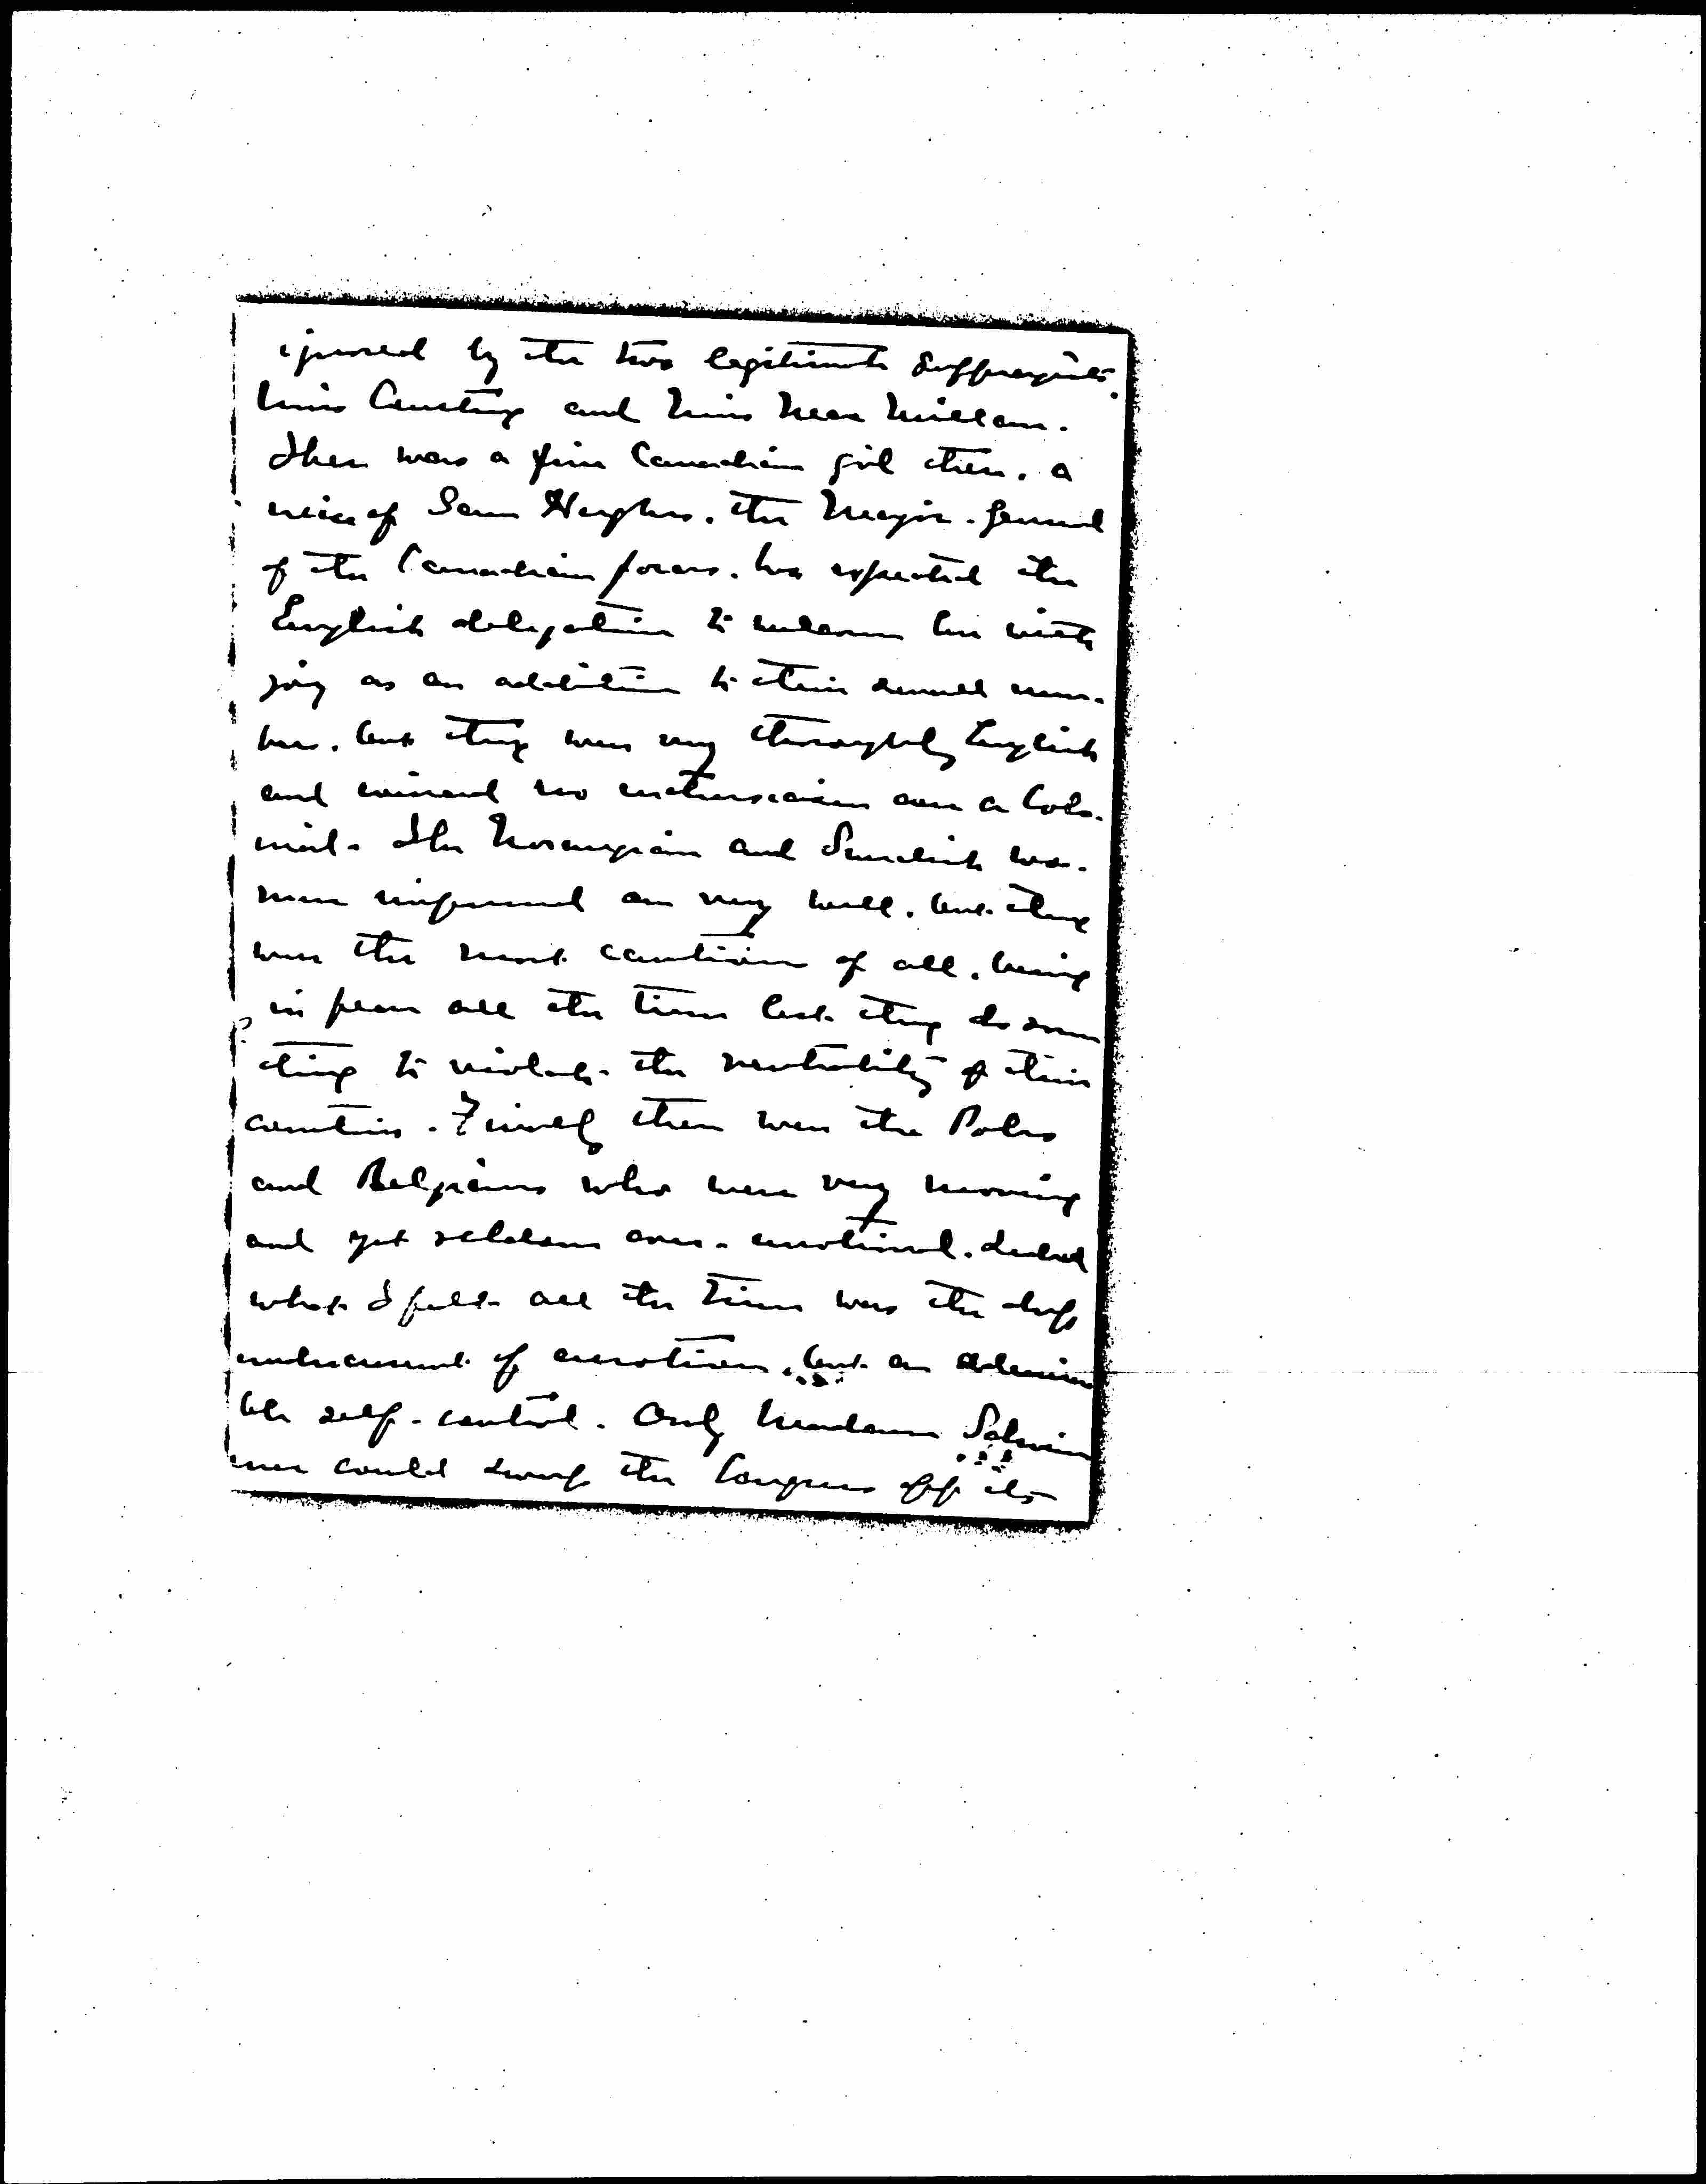 ignored by the two legitimate suffragists.
Miss Courtney and Miss MacMillan.
There was a fine Canadian girl there, a
niece of Sam Hughes, the Major-General
of the Canadian forces. We expected the
English delegation to welcome her with
joy as an addition to their small num-
ber, but they were very thoroughly English
and evinced no enthusiasm over a Colo-
nial. The Norwegian and Swedish wo-
men impressed one very well, but they
were the most cautious of all, being
in fear all the time lest they do some
thing to violate the neutrality of their
countries. Finally there were the Poles
and Belgians who were very moving
and yet seldom over-emotional. Indeed
what I felt all the time was the deep
undercurrent of emotion, but an admira
ble self-control. Only Madame Schwim
mer could sweep the Congress off its